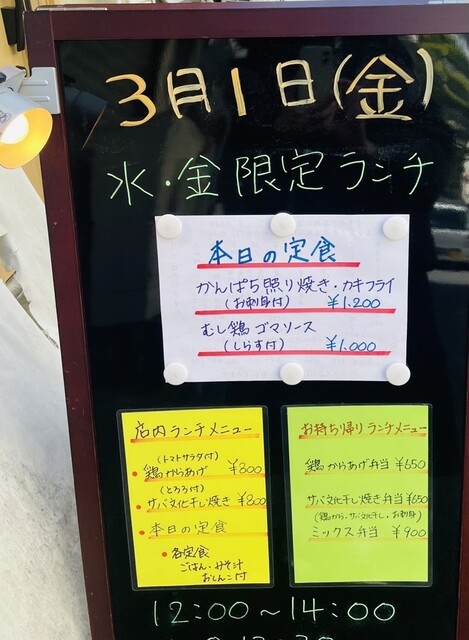 3月1日(金)
水・金限定ランチ
本日の定食
かんぱち照り焼き・カキフライ
(お刺身付) ¥1.200
むし鶏ゴマソース
(しらす付) ¥1.000
店内ランチメニュー
(トマトサラダ付)
・鶏からあげ ¥800
(とろろ付)
・サバ文化干し焼き ¥800
・本日の定食
・各定食
ごはん・みそ汁
おしんこ付
お持ち帰りランチメニュー
鶏からあげ弁当 ¥650
サバ文化干し焼き弁当 ¥650
(鶏から・サバ文化干し・お刺身)
ミックス弁当 ¥900
12:00~14:00